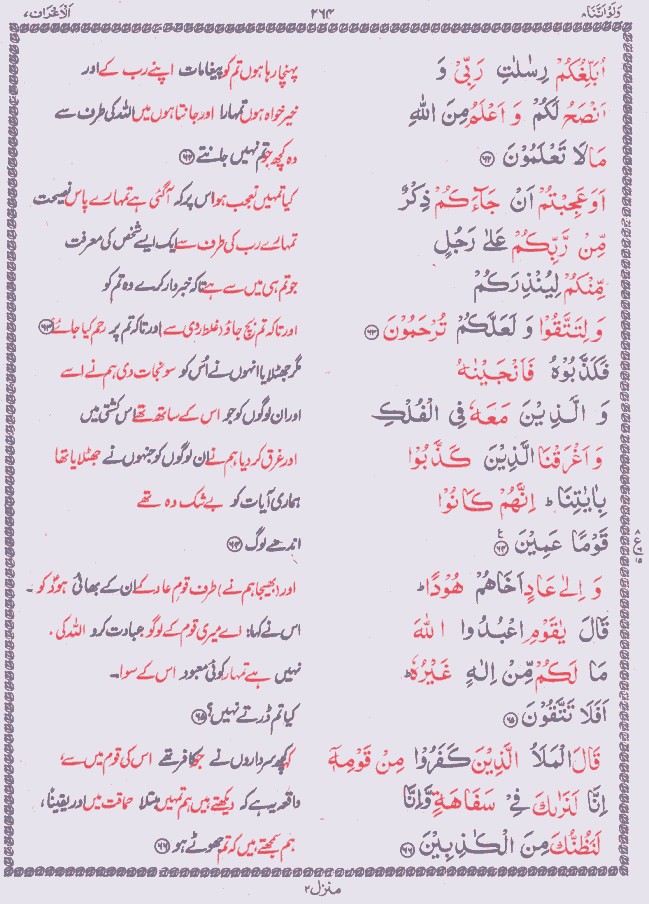 وَلَوْ اَنَّنَا ۸ ۲۶۴ اَلْاَعْرَاف ۷
اُبَلِّغُكُمْ رِسٰلٰتِ رَبِّىْ وَ پہنچا رہا ہوں تم کو پیغامات اپنے رب کے اور
اَنْصَحُ لَكُمْ وَ اَعْلَمُ مِنَ اللّٰهِ خیر خواہ ہوں تمہارا اور جانتا ہوں میں اللہ کی طرف سے
مَا لَا تَعْلَمُوْنَ ۶۲ وہ کچھ جو تم نہیں جانتے ۶۲
اَوَعَجِبْتُمْ اَنْ جَآءَكُمْ ذِكْرٌ کیا تمہیں تعجب ہوا اس پر کہ آگئی ہے تمہارے پاس نصیحت
مِّنْ رَّبِّكُمْ عَلٰى رَجُلٍ تمہارے رب کی طرف سے ایک ایسے شخص کی معرفت
مِّنْكُمْ لِيُنْذِرَكُمْ جو تم ہی میں سے ہے تاکہ خبردار کرے وہ تم کو
وَ لِتَتَّقُوْا وَ لَعَلَّكُمْ تُرْحَمُوْنَ ۶۳ اور تاکہ تم بچ جاؤ (غلط روی سے) اور تاکہ تم پر رحم کیا جائے ۶۳
فَكَذَّبُوْهُ فَاَنْجَيْنٰهُ مگر جھٹلایا انہوں نے اُس کو سو نجات دی ہم نے اسے
وَ الَّذِيْنَ مَعَهٗ فِى الْفُلْكِ اور ان لوگوں کو جو اس کے ساتھ تھے اس کشتی میں
وَ اَغْرَقْنَا الَّذِيْنَ كَذَّبُوْا اور غرق کر دیا ہم نے ان لوگوں کو جنہوں نے جھٹلایا تھا
بِاٰيٰتِنَا ؕ اِنَّهُمْ كَانُوْا ہماری آیات کو بے شک وہ تھے
قَوْمًا عَمِيْنَ ۶۴ اندھے لوگ ۶۴
وَ اِلٰى عَادٍ اَخَاهُمْ هُوْدًا ؕ اور (بھیجا ہم نے) طرف قومِ عاد کے ان کے بھائی ہودؑ کو ۔
قَالَ يٰقَوْمِ اعْبُدُوا اللّٰهَ اس نے کہا: اے میری قوم کے لوگو عبادت کرو اللہ کی ۔
مَا لَكُمْ مِّنْ اِلٰهٍ غَيْرُهٗ ؕ نہیں ہے تمہارا کوئی معبود اس کے سوا ۔
اَفَلَا تَتَّقُوْنَ ۶۵ کیا تم ڈرتے نہیں؟ ۶۵
قَالَ الْمَلَاُ الَّذِيْنَ كَفَرُوْا مِنْ قَوْمِهٖۤ کہا سرداروں نے جو کافر تھے اس کی قوم میں سے
اِنَّا لَنَرٰىكَ فِىْ سَفَاهَةٍ وَّاِنَّا واقعہ یہ ہے کہ دیکھتے ہیں ہم تمہیں مبتلا حماقت میں اور یقیناً ،
لَنَظُنُّكَ مِنَ الْكٰذِبِيْنَ ۶۶ ہم سمجھتے ہیں کہ تم جھوٹے ہو ۶۶
منزل ۲